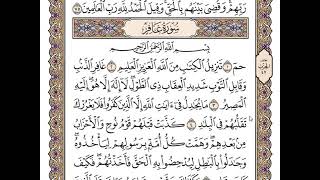 رَبِّهِمْ وَقُضِيَ بَيْنَهُم بِالْحَقِّ وَقِيلَ الْحَمْدُ لِلَّهِ رَبِّ الْعَالَمِينَ ٧٥
سُورَةُ غَافِر
بِسْمِ اللَّهِ الرَّحْمَٰنِ الرَّحِيمِ
حمٓ ١ تَنزِيلُ الْكِتَابِ مِنَ اللَّهِ الْعَزِيزِ الْعَلِيمِ ٢ غَافِرِ الذَّنبِ
وَقَابِلِ التَّوْبِ شَدِيدِ الْعِقَابِ ذِي الطَّوْلِ لَا إِلَٰهَ إِلَّا هُوَ إِلَيْهِ
الْمَصِيرُ ٣ مَا يُجَادِلُ فِي آيَاتِ اللَّهِ إِلَّا الَّذِينَ كَفَرُوا فَلَا يَغْرُرْكَ
تَقَلُّبُهُمْ فِي الْبِلَادِ ٤ كَذَّبَتْ قَبْلَهُمْ قَوْمُ نُوحٍ وَالْأَحْزَابُ
مِن بَعْدِهِمْ وَهَمَّتْ كُلُّ أُمَّةٍ بِرَسُولِهِمْ لِيَأْخُذُوهُ
وَجَادَلُوا بِالْبَاطِلِ لِيُدْحِضُوا بِهِ الْحَقَّ فَأَخَذْتُهُمْ فَكَيْفَ